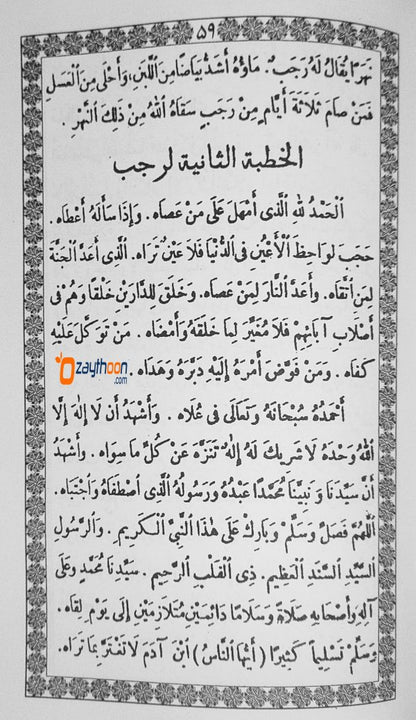 ٥٩
نَهَرًا يُقَالُ لَهُ رَجَبٌ. مَاؤُهُ أَشَدُّ بَيَاضًا مِنَ اللَّبَنِ، وَأَحْلَى مِنَ الْعَسَلِ
فَمَنْ صَامَ ثَلَاثَةَ أَيَّامٍ مِنْ رَجَبٍ سَقَاهُ اللهُ مِنْ ذَلِكَ النَّهْرِ.
الخطبة الثانية لرجب
الْحَمْدُ للهِ الَّذِي أَمْهَلَ عَلَى مَنْ عَصَاهُ. وَإِذَا سَأَلَهُ أَعْطَاهُ.
حَجَبَ لَوَاحِظَ الْأَعْيُنِ فِي الدُّنْيَا فَلَا عَيْنٌ تَرَاهُ. الَّذِي أَعَدَّ الْجَنَّةَ
لِمَنِ اتَّقَاهُ. وَأَعَدَّ النَّارَ لِمَنْ عَصَاهُ. وَخَلَقَ لِلدَّارَيْنِ خَلْقًا وَهُمْ فِي
أَصْلَابِ آبَائِهِمْ فَلَا مُغَيِّرَ لِمَا خَلَقَهُ وَأَمْضَاهُ. مَنْ تَوَكَّلَ عَلَيْهِ
كَفَاهُ. وَمَنْ فَوَّضَ أَمْرَهُ إِلَيْهِ دَبَّرَهُ وَهَدَاهُ.
zaythoon.com
أَحْمَدُهُ سُبْحَانَهُ وَتَعَالَى فِي عُلَاهُ. وَأَشْهَدُ أَنْ لَا إِلَهَ إِلَّا
اللهُ وَحْدَهُ لَا شَرِيكَ لَهُ إِلَهٌ تَنَزَّهَ عَنْ كُلِّ مَا سِوَاهُ. وَأَشْهَدُ
أَنَّ سَيِّدَنَا وَنَبِيَّنَا مُحَمَّدًا عَبْدُهُ وَرَسُولُهُ الَّذِي اصْطَفَاهُ وَاجْتَبَاهُ.
اَللّٰهُمَّ فَصَلِّ وَسَلِّمْ وَبَارِكْ عَلَى هٰذَا النَّبِيِّ الْكَرِيمِ. وَالرَّسُولِ
السَّيِّدِ السَّنَدِ الْعَظِيمِ. ذِي الْقَلْبِ الرَّحِيمِ. سَيِّدِنَا مُحَمَّدٍ وَعَلَى
آلِهِ وَأَصْحَابِهِ صَلَاةً وَسَلَامًا دَائِمَيْنِ مُتَلَازِمَيْنِ إِلَى يَوْمِ لِقَاهُ.
وَسَلِّمْ تَسْلِيمًا كَثِيرًا (أَيُّهَا النَّاسُ) ابْنَ آدَمَ لَا تَغْتَرَّ بِمَا تَرَاهُ.